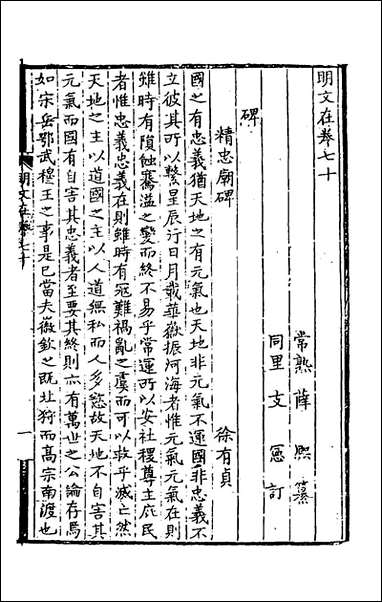 明文在卷七十
常熟薛熙纂
同里支𡨴訂
碑
精忠廟碑 徐有貞
國之有忠義猶天地之有元氣也天地非元氣不運國非忠義不
立彼其所以繫星辰行日月載華嶽振河海者惟元氣元氣在則
雖時有隕蝕騫溢之變而終不易乎常運所以安社稷尊主庇民
者惟忠義忠義在則雖時有寇難禍亂之虞而可以救乎滅亡然
天地之主以道國之主以人道無私而人多慾故天地不自害其
元氣而國有自害其忠義者至要其終則亦有萬世之公論存焉
如宋岳鄂武穆王之事是已當夫徽欽之既北狩而高宗南渡也
明文在卷七十
一